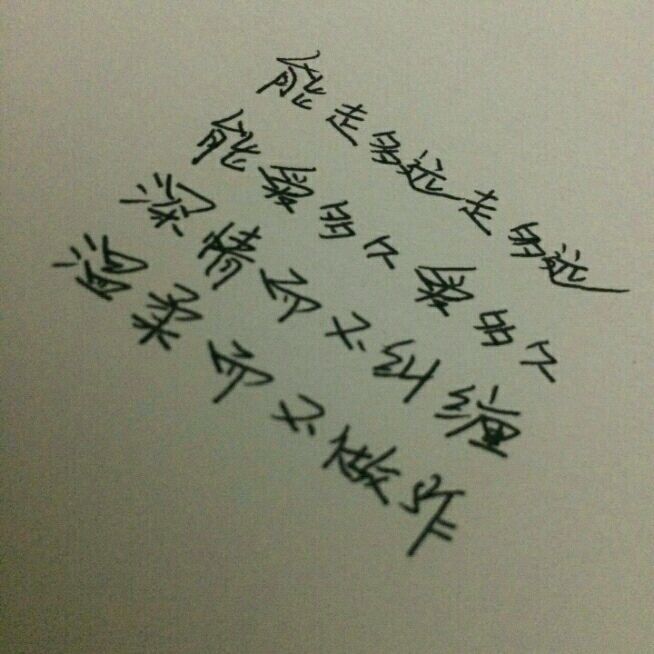 能走多远走多远
能爱多久爱多久
深情而不纠缠
温柔而不做作